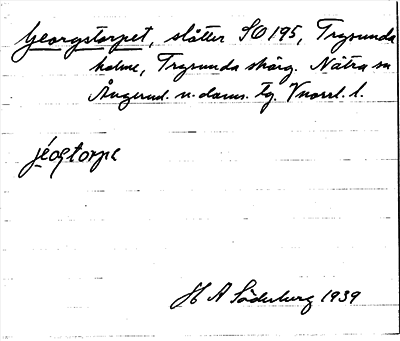 Georgstorpet, slåtter SO 195, Trysunda
holme, Trysunda skärg. Nätra sn
Ångerml. n. doms. tg. Vnorrl. l.
jéogtorpe
H A Söderberg 1939